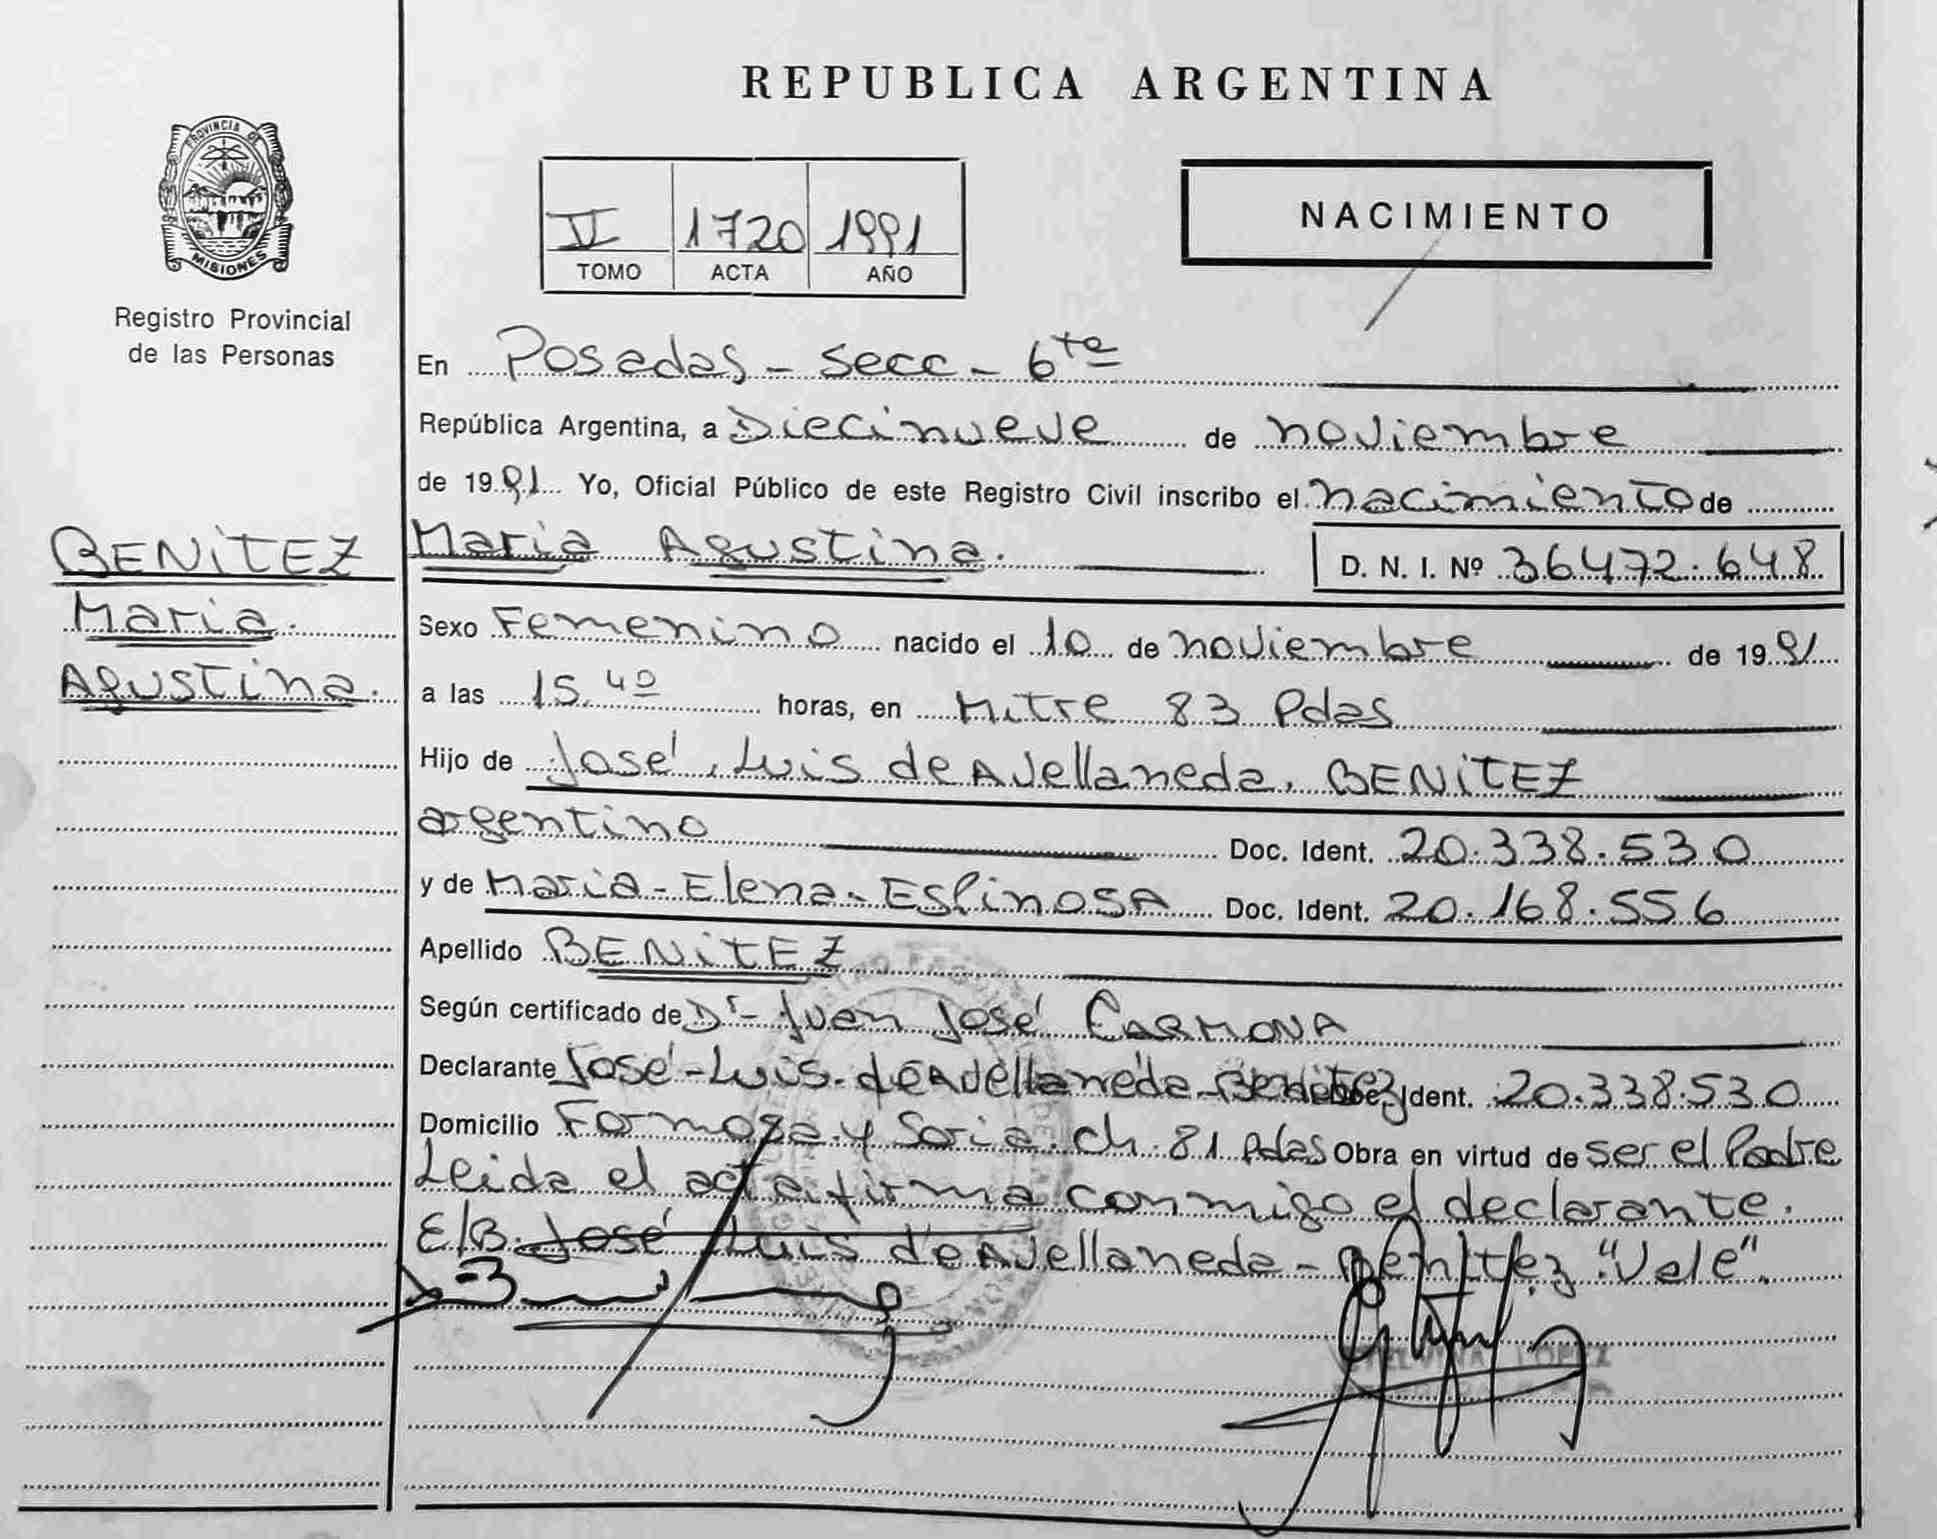 REPUBLICA ARGENTINA
PROVINCIA DE
MISIONES
Registro Provincial
de las Personas
II 1720 1991
TOMO ACTA AÑO
NACIMIENTO
En Posadas - secc - 6ta
República Argentina, a Diecinueve de noviembre
de 1991 Yo, Oficial Público de este Registro Civil inscribo el nacimiento de
BENITEZ
Maria.
Agustina.
Maria Agustina. D. N. I. Nº 36472.648
Sexo Femenino nacido el 10 de noviembre de 1991
a las 15.40 horas, en Mitre 83 Pdas
Hijo de José, Luis de Avellaneda, BENITEZ
argentino Doc. Ident. 20.338.530
y de Maria - Elena - Espinosa Doc. Ident. 20.168.556
Apellido BENITEZ
Según certificado de Dr - Juan José CARMONA
Declarante José - Luis - de Avellaneda - Benitez Doc. Ident. 20.338.530
Domicilio Formosa y Soria. ch. 81 Pdas Obra en virtud de ser el Padre
Leida el acta firma conmigo el declarante.
E/B. José Luis de Avellaneda - Benitez "Vale".
LOPEZ